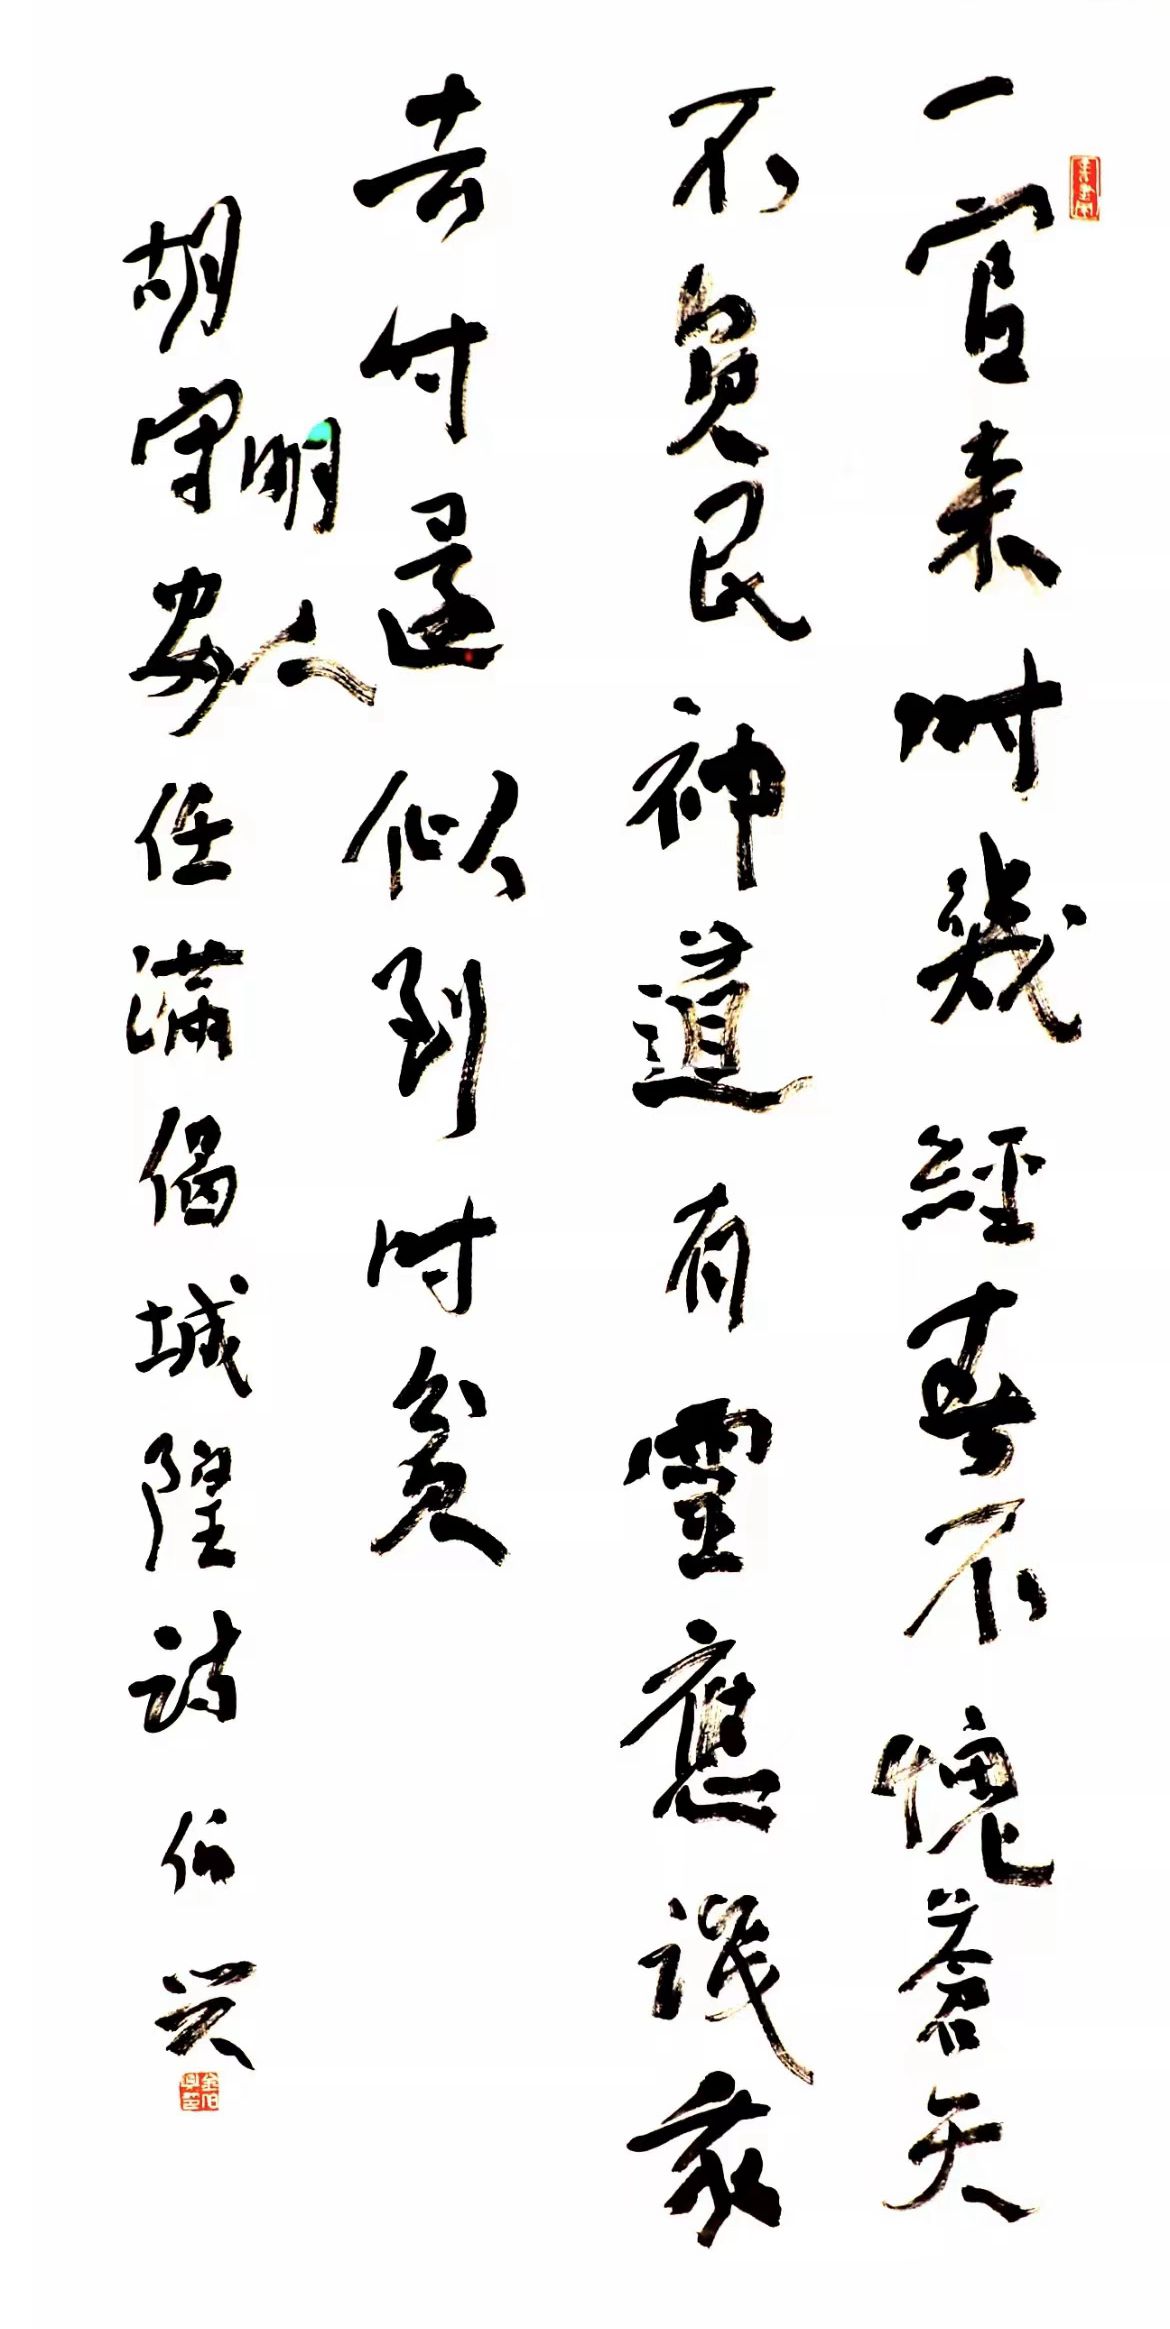 一官来此幾經春不愧蒼天
不負民神道有靈應識我
去时還似到时貧
明人
胡守安任满偈城隍诗 伯兴